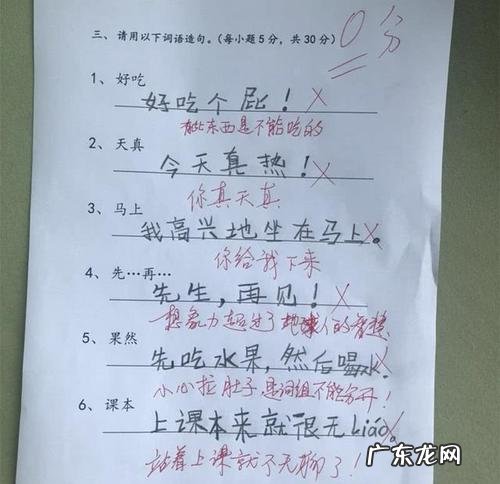 三、请用以下词语造句。(每小题5分，共30分)
0分
1、好吃
好吃个屁！
有些东西是不能吃的
2、天真
今天真热！
你真天真
3、马上
我高兴地坐在马上。
你给我下来
4、先…再…
先生，再见！
想象力超过了地球人的智慧
5、果然
先吃水果，然后喝水。
小心拉肚子 是词组不能分开！
6、课本
上课本来就很无liáo。
站着上课就不无聊了！
广东龙网